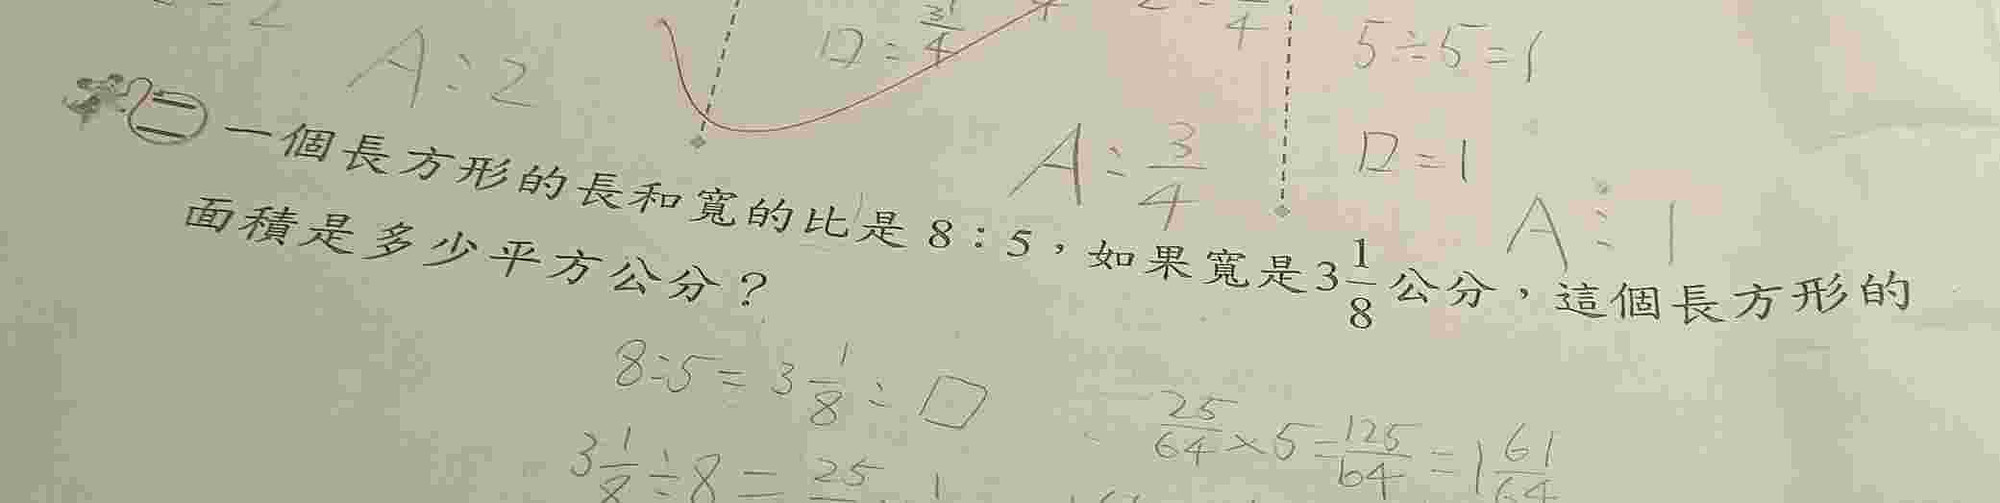 A:2
□=3/4
5÷5=1
□=1
A:3/4
A:1
二 一個長方形的長和寬的比是 8:5,如果寬是3 1/8公分,這個長方形的
面積是多少平方公分?
8:5=3 1/8:□
25/64×5=125/64=1 61/64
3 1/8÷8=25